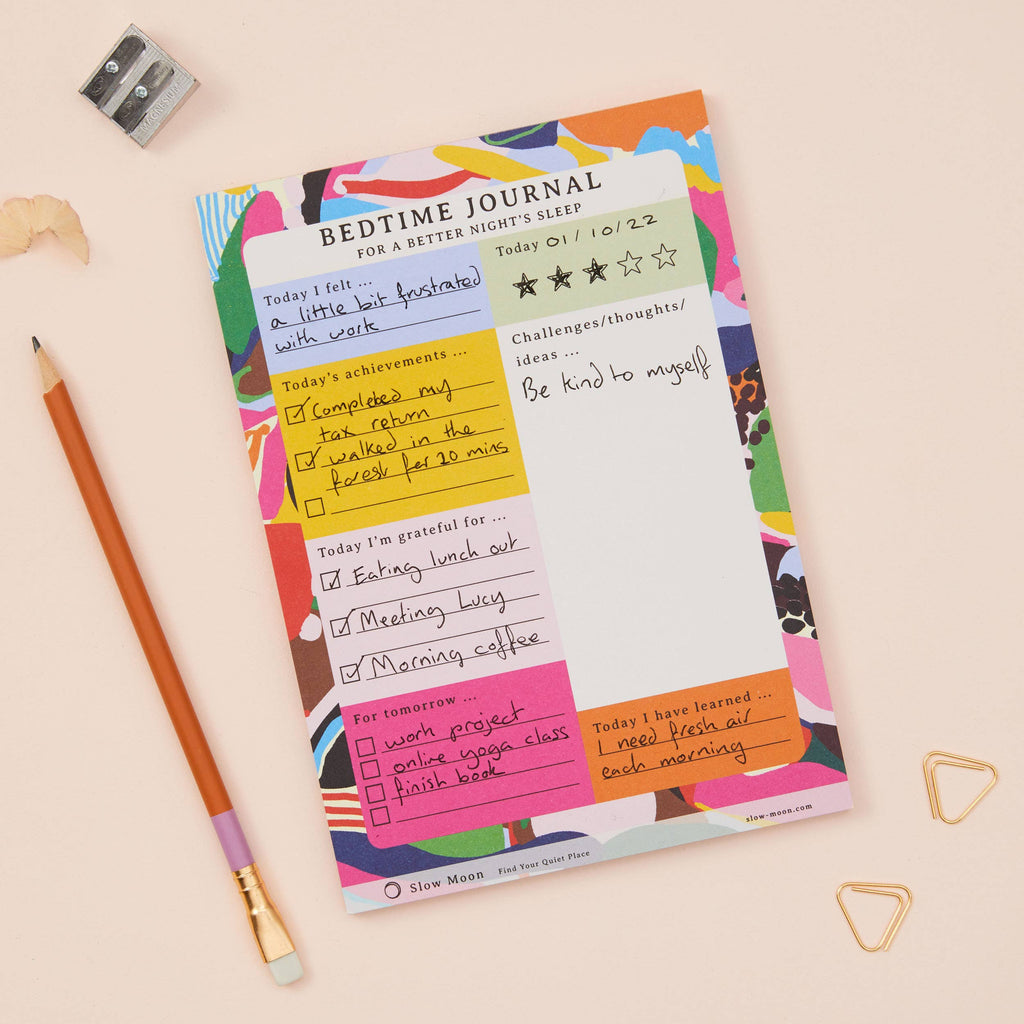 MAGNESIUM
BEDTIME JOURNAL
FOR A BETTER NIGHT'S SLEEP
Today I felt ...
a little bit frustrated
with work
Today 01/10/22
Today's achievements ...
Completed my
tax return
walked in the
forest for 20 mins
Challenges/thoughts/
ideas ...
Be kind to myself
Today I'm grateful for ...
Eating lunch out
Meeting Lucy
Morning coffee
For tomorrow ...
work project
online yoga class
finish book
Today I have learned ...
I need fresh air
each morning
slow-moon.com
Slow Moon Find Your Quiet Place